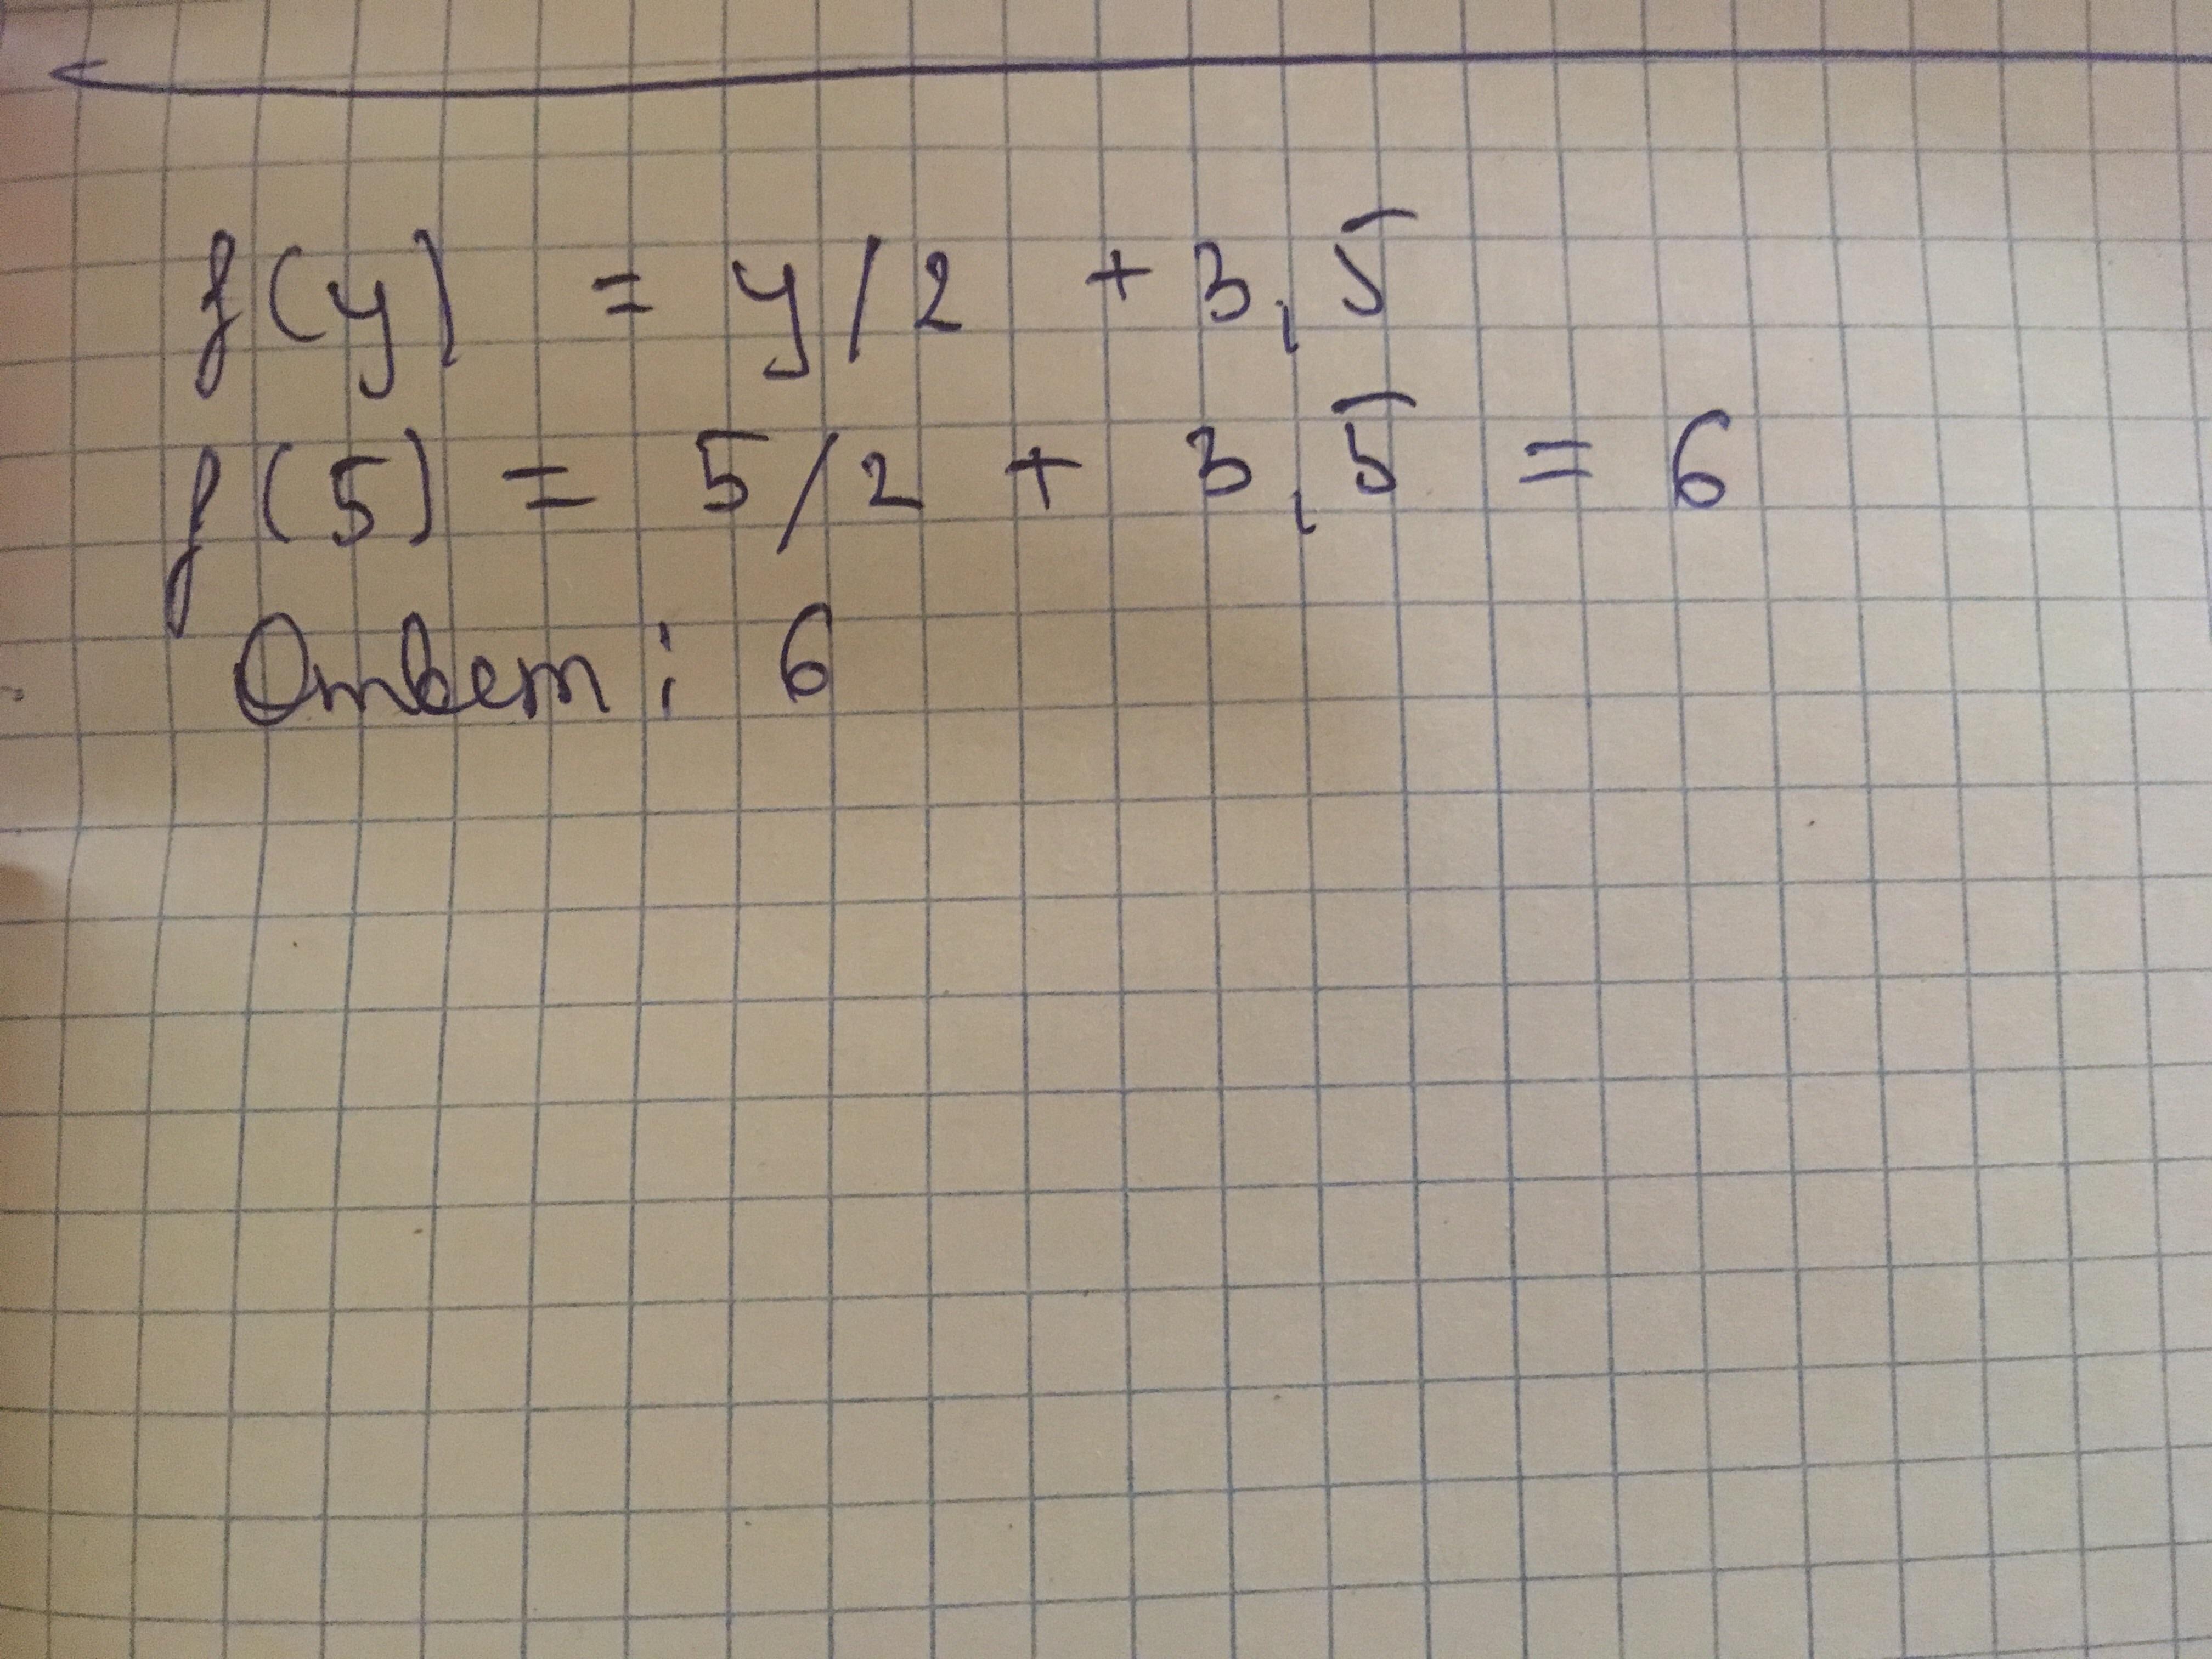 f(y) = y/2 + 3,5
f(5) = 5/2 + 3,5 = 6
Ответ: 6